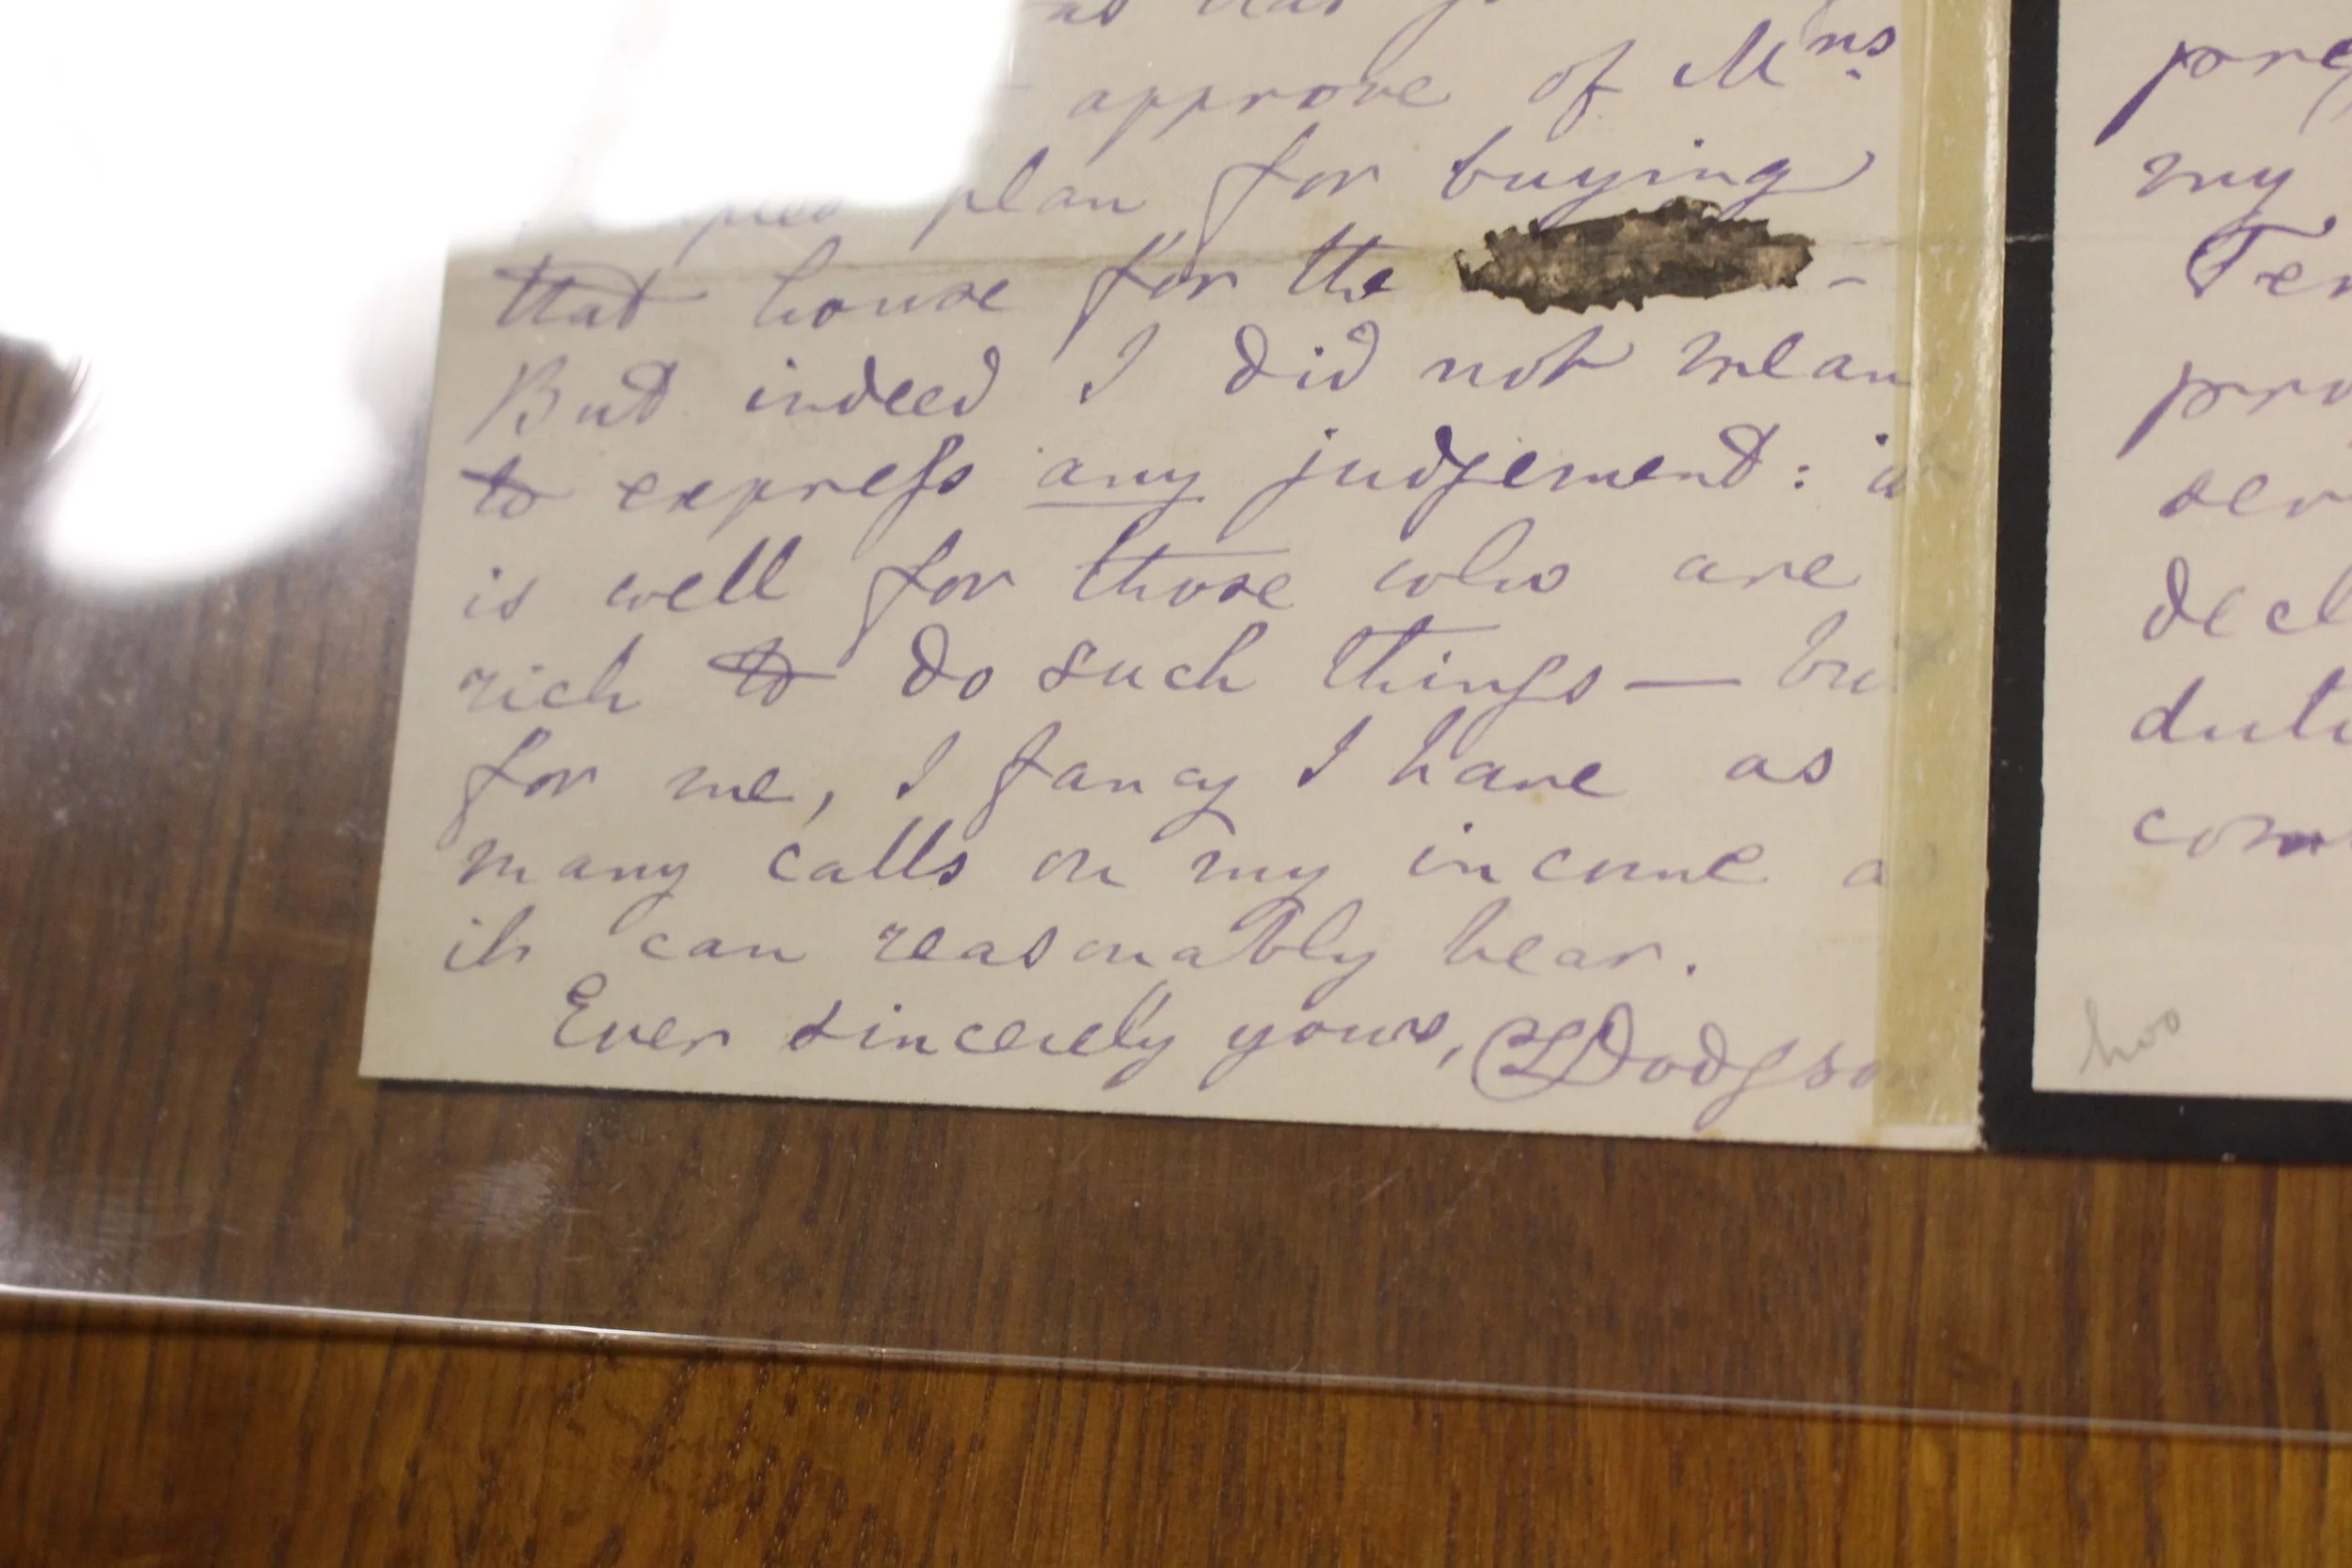 approve of Mrs.
plan for buying
that house for the -
But indeed I did not mean
to express any judgement: it
is well for those who are
rich to do such things — but
for me, I fancy I have as
many calls on my income as
it can reasonably bear.
Ever sincerely yours, CLDodgson
my